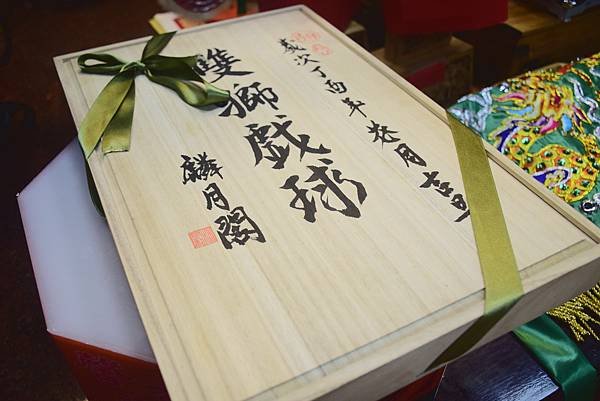 歲次丁酉年葵月吉旦
雙獅戲球
麟月閣